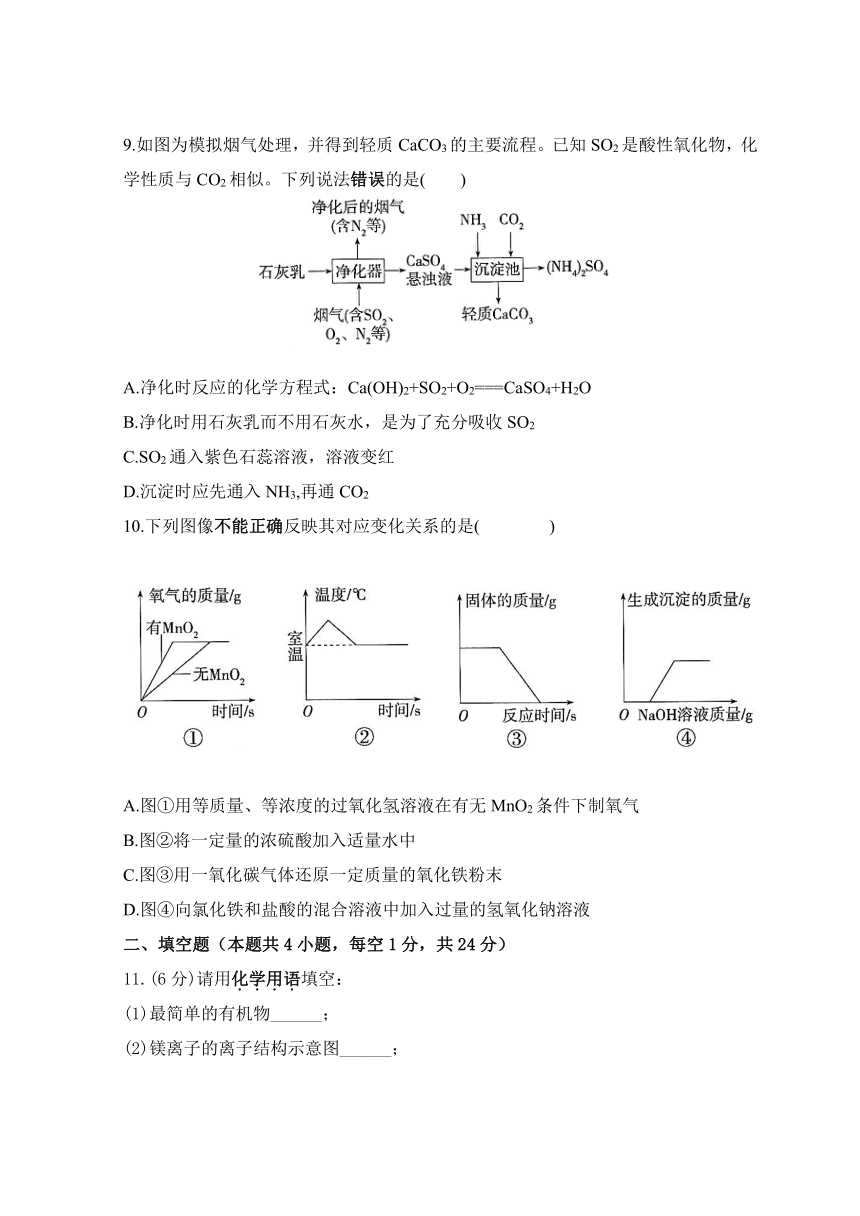 9.如图为模拟烟气处理，并得到轻质 CaCO₃的主要流程。已知 SO₂是酸性氧化物，化
学性质与 CO₂相似。下列说法错误的是(　　)
净化后的烟气
(含N₂等)
NH₃ CO₂
石灰乳
净化器
CaSO₄
悬浊液
沉淀池
(NH₄)₂SO₄
烟气(含SO₂、
O₂、N₂等)
轻质CaCO₃
A.净化时反应的化学方程式：Ca(OH)₂+SO₂+O₂===CaSO₄+H₂O
B.净化时用石灰乳而不用石灰水，是为了充分吸收 SO₂
C.SO₂通入紫色石蕊溶液，溶液变红
D.沉淀时应先通入 NH₃,再通 CO₂
10.下列图像不能正确反映其对应变化关系的是(　　　　)
氧气的质量/g
有MnO₂
无MnO₂
O 时间/s
①
温度/℃
室温
O 时间/s
②
固体的质量/g
O 反应时间/s
③
生成沉淀的质量/g
O NaOH溶液质量/g
④
A.图①用等质量、等浓度的过氧化氢溶液在有无 MnO₂条件下制氧气
B.图②将一定量的浓硫酸加入适量水中
C.图③用一氧化碳气体还原一定质量的氧化铁粉末
D.图④向氯化铁和盐酸的混合溶液中加入过量的氢氧化钠溶液
二、填空题（本题共 4 小题，每空 1 分，共 24 分）
11.(6 分)请用化学用语填空:
(1)最简单的有机物______;
(2)镁离子的离子结构示意图______;